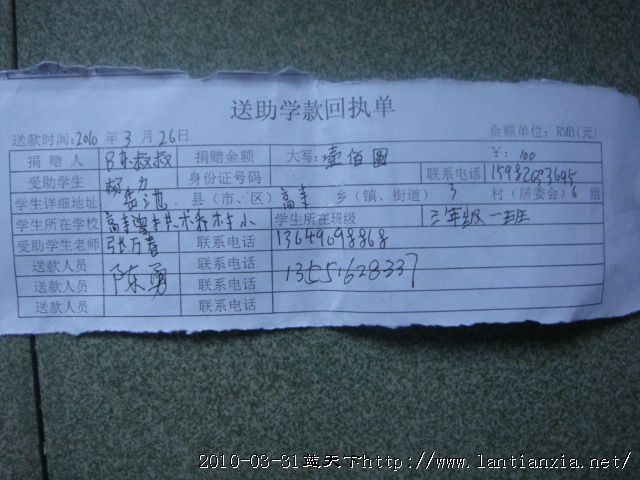 送助学款回执单
送款时间:2010 年 3 月 26日 金额单位：RMB(元)
捐赠人 陈叔叔 捐赠金额 大写：壹佰圆 ￥：100
受助学生 杨力 身份证号码 联系电话 15982023695
学生详细地址 岳池 县（市、区）高圭 乡（镇、街道）3 村（居委会）6 组
学生所在学校 学生所在班级 三年级一班
受助学生老师 张万春 联系电话 13649098868
送款人员 联系电话
送款人员 陈勇 联系电话 13551628337
送款人员 联系电话
2010-03-31蓝天下http://www.lantianxia.net/